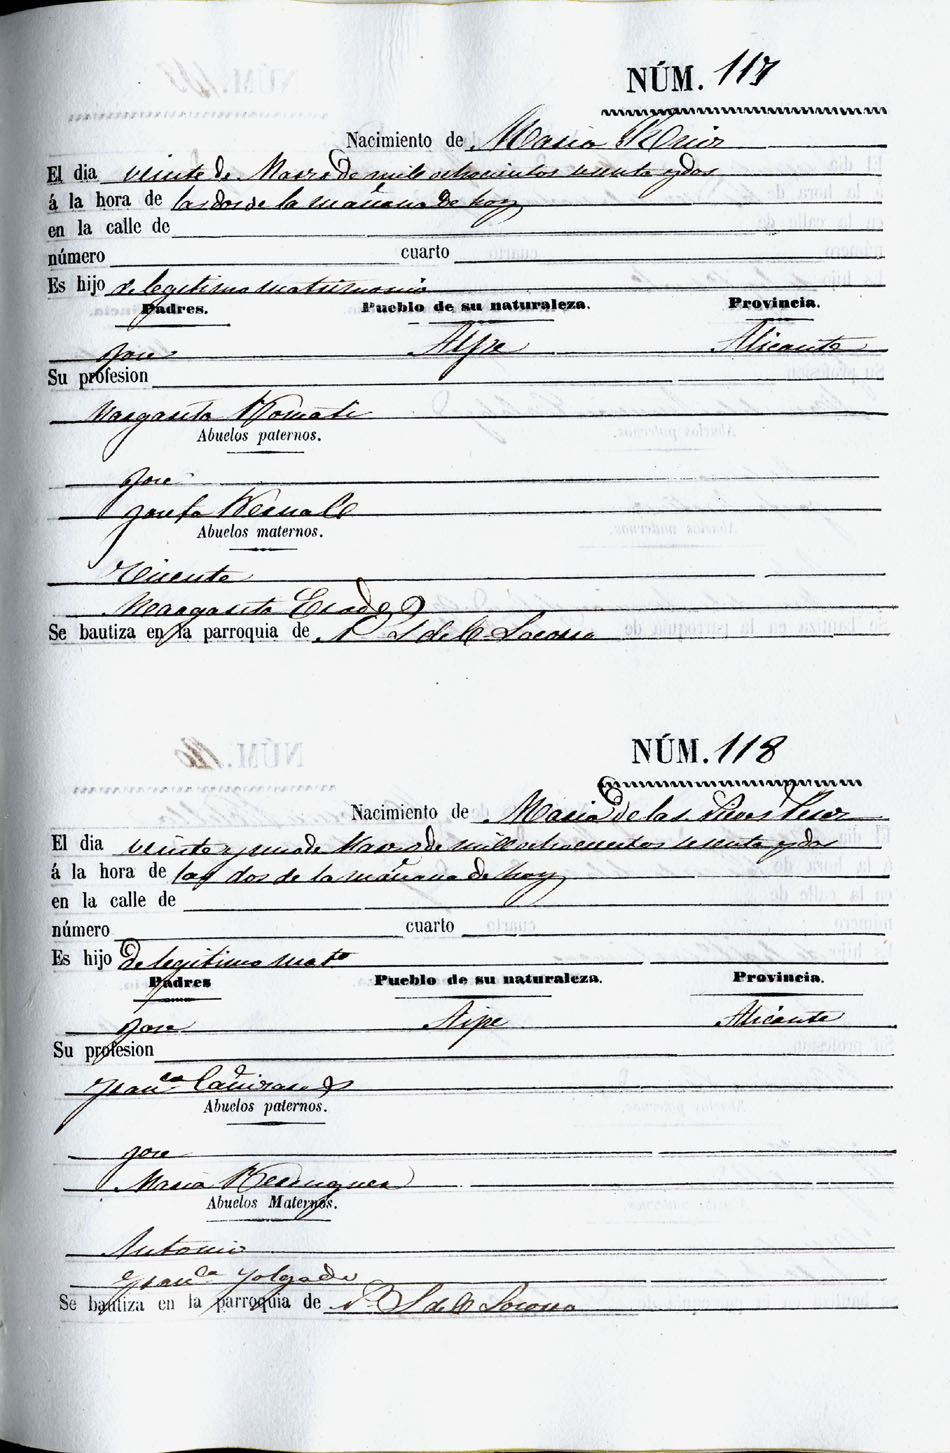 NÚM. 117
Nacimiento de Maria
El dia veinte de Marzo de mil ochocientos setenta y dos
á la hora de las dos de la mañana de hoy
en la calle de
número cuarto
Es hijo de legitimo matrimonio
Padres. Pueblo de su naturaleza. Provincia.
Jose Aspe Alicante
Su profesion
Margarita
Abuelos paternos.
Jose
Josefa
Abuelos maternos.
Vicente
Margarita
Se bautiza en la parroquia de N. S. del Socorro
NÚM. 118
Nacimiento de Maria de las Nieves
El dia veinte y uno de Marzo de mil ochocientos setenta y dos
á la hora de las dos de la mañana de hoy
en la calle de
número cuarto
Es hijo de legitimo mato
Padres Pueblo de su naturaleza. Provincia.
Jose Aspe Alicante
Su profesion
Franca Cañizares
Abuelos paternos.
Jose
Maria
Abuelos Maternos.
Antonio
Franca
Se bautiza en la parroquia de N. S. del Socorro